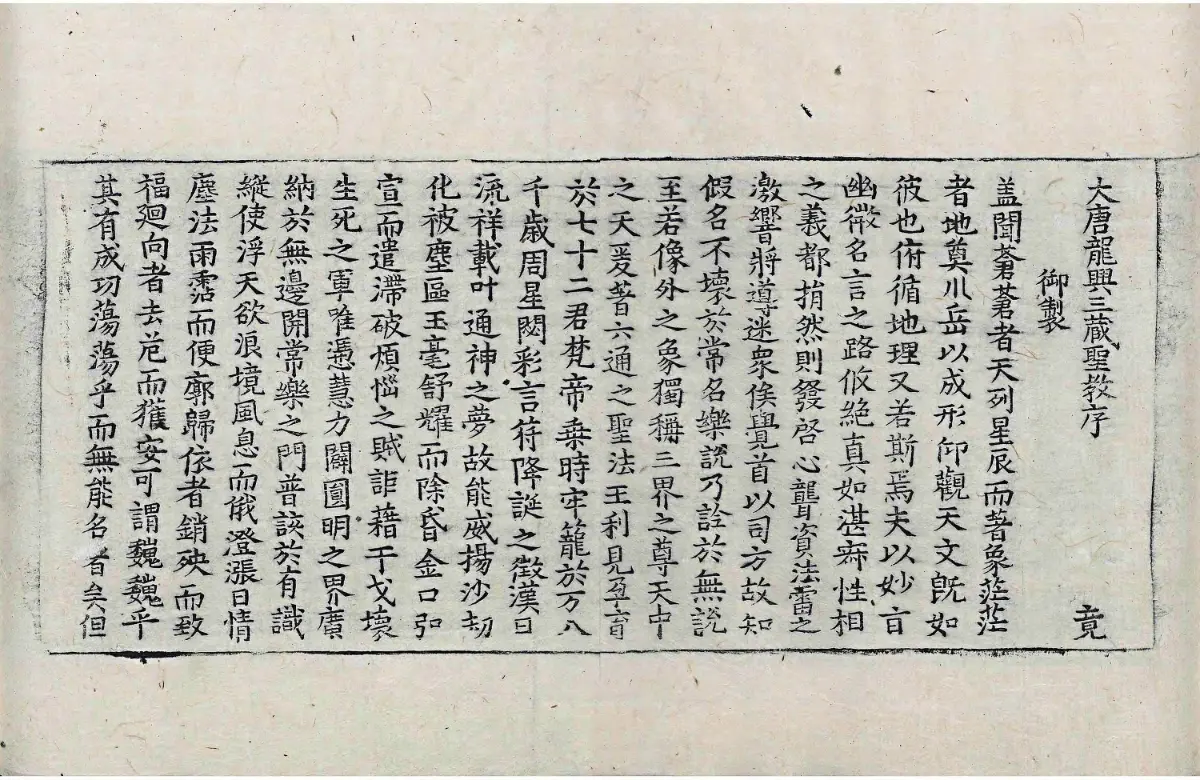 大唐龍興三藏聖教序 竟
御製
盖聞蒼蒼者天列星辰而著象茫茫
者地奠川岳以成形仰觀天文旣如
彼也俯循地理又若斯焉夫以妙言
幽微名言之路攸絶真如湛寂性相
之義都捐然則發啓心聾資法雷之
激響將導迷衆俟覺首以司方故知
假名不壞於常名樂說乃詮於無說
至若像外之象獨稱三界之尊天中
之天爰著六通之聖法王利見孕育
於七十二君梵帝乘時牢籠於万八
千歲周星閟彩言符降誕之徵漢日
流祥載叶通神之夢故能威揚沙刧
化被塵區玉毫舒耀而除昏金口弘
宣而遣滯破煩惱之賊詎藉干戈壞
生死之軍唯憑慧力闢圓明之界廣
納於無邊開常樂之門普該於有識
縱使浮天欲浪境風息而俄澄漲日情
塵法雨霑而便廓歸依者銷殃而致
福迴向者去危而獲安可謂巍巍乎
其有成功蕩蕩乎而無能名者矣但